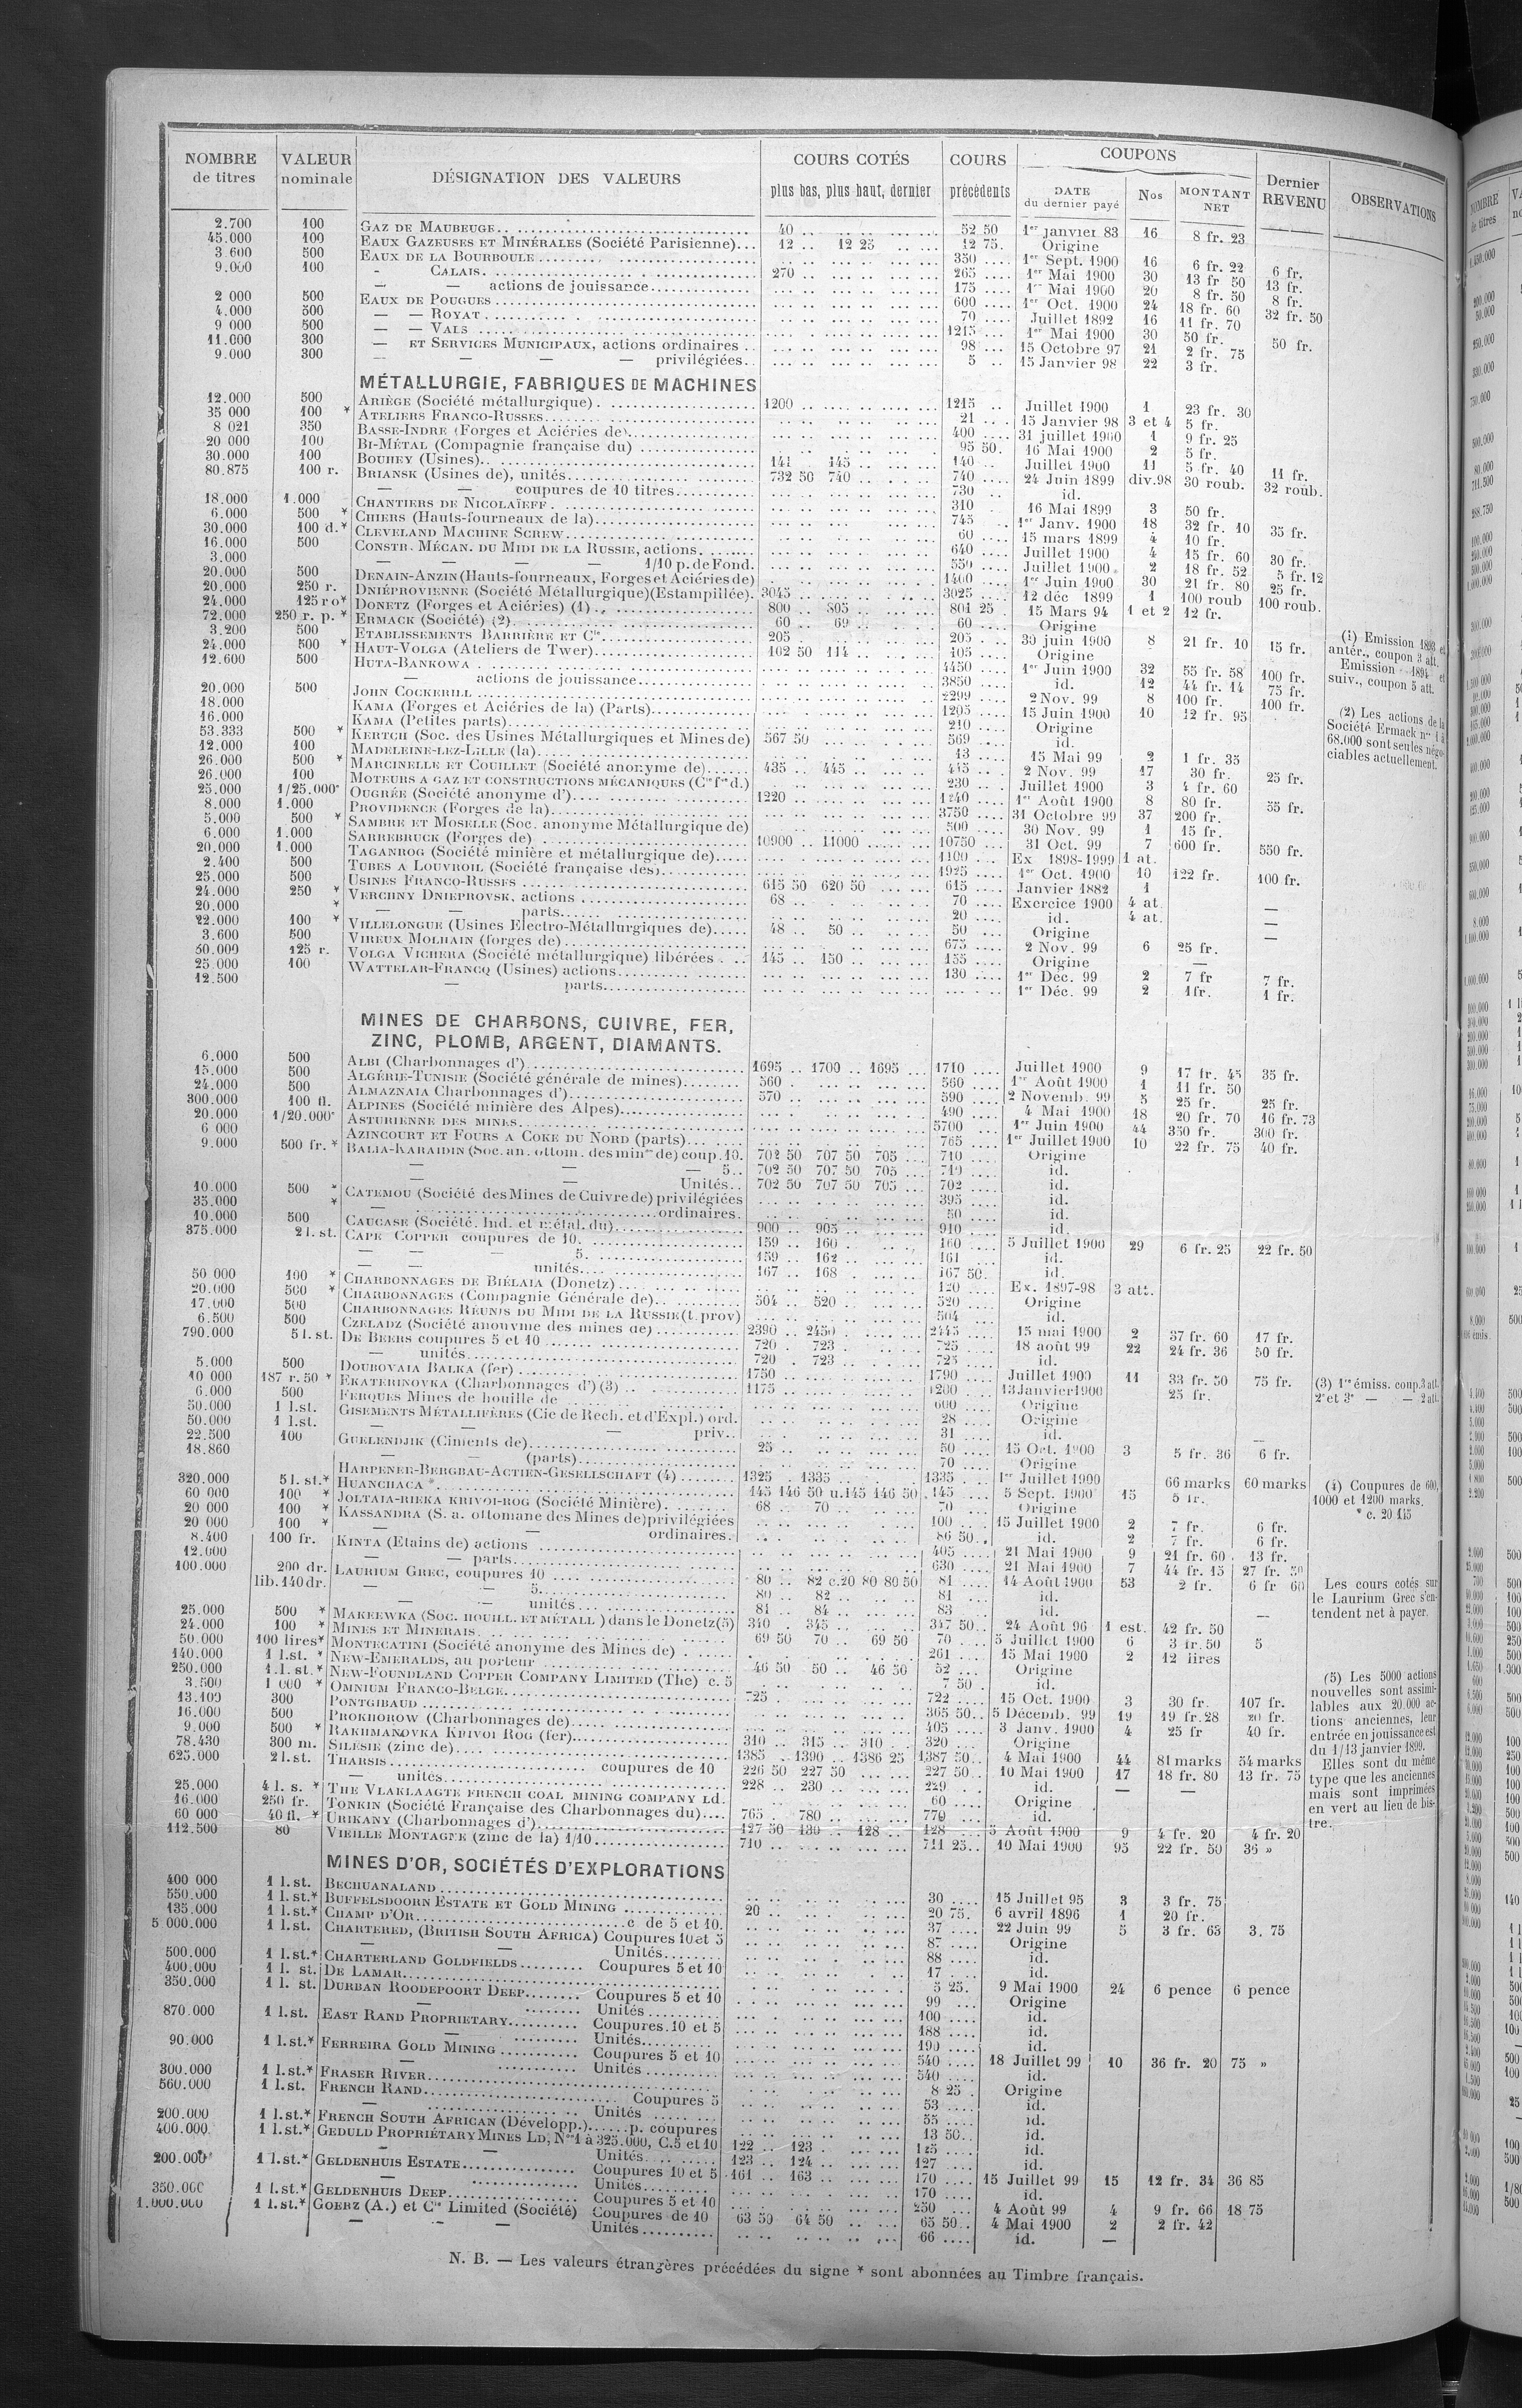 NOMBRE de titres | VALEUR nominale | DÉSIGNATION DES VALEURS | COURS COTÉS plus bas, plus haut, dernier | COURS précédents | COUPONS DATE du dernier payé | Nos | MONTANT NET | Dernier REVENU | OBSERVATIONS
2.700 100 GAZ DE MAUBEUGE 40 52 50 1er janvier 83 16 8 fr. 23
45.000 100 EAUX GAZEUSES ET MINÉRALES (Société Parisienne) 12 .. 12 25 12 75. Origine
3.600 500 EAUX DE LA BOURBOULE 350 1er Sept. 1900 16 6 fr. 22 6 fr.
9.000 100 - CALAIS. 270 265 1er Mai 1900 30 13 fr 50 13 fr.
— — actions de jouissance 175 1er Mai 1900 20 8 fr. 50 8 fr.
2 000 500 EAUX DE POUGUES 600 1er Oct. 1900 24 18 fr. 60 32 fr. 50
4.000 500 — — ROYAT 70 Juillet 1892 16 11 fr. 70
9 000 500 — — VALS 1215 1er Mai 1900 30 50 fr. 50 fr.
11.000 300 — ET SERVICES MUNICIPAUX, actions ordinaires 98 15 Octobre 97 21 2 fr. 75
9.000 300 — — — — privilégiées 5 15 Janvier 98 22 3 fr.
MÉTALLURGIE, FABRIQUES DE MACHINES
12.000 500 ARIÈGE (Société métallurgique) 1200 1215 Juillet 1900 1 23 fr. 30
35 000 100 * ATELIERS FRANCO-RUSSES 21 15 Janvier 98 3 et 4 5 fr.
8 021 350 BASSE-INDRE (Forges et Aciéries de) 400 31 juillet 1900 1 9 fr. 25
20 000 100 BI-MÉTAL (Compagnie française du) 95 50. 16 Mai 1900 2 5 fr.
30.000 100 BOUHEY (Usines) 141 145 140 Juillet 1900 11 5 fr. 40 11 fr.
80.875 100 r. BRIANSK (Usines de), unités 732 50 740 740 24 Juin 1899 div.98 30 roub. 32 roub.
— — coupures de 10 titres 730 id.
18.000 1.000 CHANTIERS DE NICOLAÏEFF 310 16 Mai 1899 3 50 fr.
6.000 500 * CHIERS (Hauts-fourneaux de la) 745 1er Janv. 1900 18 32 fr. 10 35 fr.
30.000 100 d.* CLEVELAND MACHINE SCREW 60 15 mars 1899 4 10 fr.
16.000 500 CONSTR. MÉCAN. DU MIDI DE LA RUSSIE, actions 640 Juillet 1900 4 15 fr. 60 30 fr.
3.000 — — — — 1/10 p. de Fond. 550 Juillet 1900 2 18 fr. 52 5 fr. 12
20.000 500 DENAIN-ANZIN (Hauts-fourneaux, Forges et Aciéries de) 1400 1er Juin 1900 30 21 fr. 80 25 fr.
20.000 250 r. DNIÉPROVIENNE (Société Métallurgique)(Estampillée). 3045 3025 12 déc 1899 1 100 roub 100 roub.
24.000 125 ro* DONETZ (Forges et Aciéries) (1) 800 805 801 25 15 Mars 94 1 et 2 12 fr.
72.000 250 r. p. * ERMACK (Société) (2) 60 69 60 Origine
3.200 500 ETABLISSEMENTS BARRIÈRE ET Cie 205 205 30 juin 1900 8 21 fr. 10 15 fr.
24.000 500 * HAUT-VOLGA (Ateliers de Twer) 102 50 114 105 Origine
12.600 500 HUTA-BANKOWA 4450 1er Juin 1900 32 55 fr. 58 100 fr.
— actions de jouissance 3850 id. 12 44 fr. 14 75 fr.
20.000 500 JOHN COCKERILL 2299 2 Nov. 99 8 100 fr. 100 fr.
18.000 KAMA (Forges et Aciéries de la) (Parts) 1205 15 Juin 1900 10 12 fr. 95
16.000 KAMA (Petites parts) 210 Origine
53.333 500 * KERTCH (Soc. des Usines Métallurgiques et Mines de) 567 50 569 id.
12.000 100 MADELEINE-LEZ-LILLE (la) 13 15 Mai 99 2 1 fr. 35
26.000 500 * MARCINELLE ET COUILLET (Société anonyme de) 435 445 445 2 Nov. 99 17 30 fr. 25 fr.
26.000 100 MOTEURS A GAZ ET CONSTRUCTIONS MÉCANIQUES (Cie fse d.) 230 Juillet 1900 3 4 fr. 60
25.000 1/25.000e OUGRÉE (Société anonyme d') 1220 1240 1er Août 1900 8 80 fr. 55 fr.
8.000 1.000 PROVIDENCE (Forges de la) 3750 31 Octobre 99 37 200 fr.
5.000 500 * SAMBRE ET MOSELLE (Soc. anonyme Métallurgique de) 500 30 Nov. 99 1 15 fr.
6.000 1.000 SARREBRUCK (Forges de) 10900 11000 10750 31 Oct. 99 7 600 fr. 550 fr.
20.000 1.000 TAGANROG (Société minière et métallurgique de) 1100 Ex 1898-1999 1 at.
2.400 500 TUBES A LOUVROIL (Société française des) 1925 1er Oct. 1900 10 122 fr. 100 fr.
25.000 500 USINES FRANCO-RUSSES 615 50 620 50 615 Janvier 1882 1
24.000 250 * VERCHNY DNIEPROVSK, actions 68 70 Exercice 1900 4 at. —
20.000 * — — parts 20 id. 4 at. —
22.000 100 * VILLELONGUE (Usines Electro-Métallurgiques de) 48 50 50 Origine —
3.600 500 VIREUX MOLHAIN (forges de) 675 2 Nov. 99 6 25 fr.
50.000 125 r. VOLGA VICHERA (Société métallurgique) libérées 145 150 155 Origine —
25.000 100 WATTELAR-FRANCQ (Usines) actions 130 1er Déc. 99 2 7 fr 7 fr.
12.500 — parts 1er Déc. 99 2 1 fr. 1 fr.
MINES DE CHARBONS, CUIVRE, FER,
ZINC, PLOMB, ARGENT, DIAMANTS.
6.000 500 ALBI (Charbonnages d') 1695 1700 1695 1710 Juillet 1900 9 17 fr. 45 35 fr.
15.000 500 ALGÉRIE-TUNISIE (Société générale de mines) 560 560 1er Août 1900 1 11 fr. 50
24.000 500 ALMAZNAIA Charbonnages d') 570 590 2 Novemb. 99 5 25 fr. 25 fr.
300.000 100 fl. ALPINES (Société minière des Alpes) 490 4 Mai 1900 18 20 fr. 70 16 fr. 73
20.000 1/20.000e ASTURIENNE DES MINES 5700 1er Juin 1900 44 350 fr. 300 fr.
6 000 AZINCOURT ET FOURS A COKE DU NORD (parts) 765 1er Juillet 1900 10 22 fr. 75 40 fr.
9.000 500 fr. * BALIA-KARAIDIN (Soc. an. ottom. des mines de) coup. 10. 702 50 707 50 705 710 Origine
— — — 5. 702 50 707 50 705 710 id.
— — Unités 702 50 707 50 705 702 id.
10.000 500 * CATEMOU (Société des Mines de Cuivre de) privilégiées 395 id.
35.000 * — ordinaires. 50 id.
10.000 500 CAUCASE (Société. Ind. et métal. du) 900 905 910 id.
375.000 2 l. st. CAPE COPPER coupures de 10. 159 160 160 5 Juillet 1900 29 6 fr. 25 22 fr. 50
— — — 5. 159 162 161 id.
— — unités 167 168 167 50. id.
50 000 100 * CHARBONNAGES DE BIÉLAIA (Donetz) 120 Ex. 1897-98 3 att.
20.000 500 * CHARBONNAGES (Compagnie Générale de) 504 520 520 Origine
17.000 500 CHARBONNAGES RÉUNIS DU MIDI DE LA RUSSIE (t. prov) 504 id.
6.500 500 CZELADZ (Société anonyme des mines de) 2390 2450 2445 15 mai 1900 2 37 fr. 60 17 fr.
790.000 5 l. st. DE BEERS coupures 5 et 10 720 723 725 18 août 99 22 24 fr. 36 50 fr.
— unités 720 723 725 id.
5.000 500 DOUBOVAIA BALKA (fer) 1750 1790 Juillet 1900 11 33 fr. 50 75 fr.
10 000 187 r. 50 * EKATERINOVKA (Charbonnages d') (3) 1175 1200 13 Janvier 1900 25 fr.
6.000 500 FERQUES Mines de houille de 600 Origine
50.000 1 l.st. GISEMENTS MÉTALLIFÈRES (Cie de Rech. et d'Expl.) ord. 28 Origine
50.000 1 l.st. — — priv. 31 id. —
22.500 100 GUELENDJIK (Ciments de) 25 50 15 Oct. 1900 3 5 fr. 36 6 fr.
18.860 — (parts) 70 Origine
HARPENER-BERGBAU-ACTIEN-GESELLSCHAFT (4) 1325 1335 1335 1er Juillet 1900 66 marks 60 marks
320.000 5 l. st.* HUANCHACA * 145 146 50 u.145 146 50 145 5 Sept. 1900 15 5 fr.
60 000 100 * JOLTAIA-RIEKA KRIVOI-ROG (Société Minière) 68 70 70 Origine
20 000 100 * KASSANDRA (S. a. ottomane des Mines de) privilégiées 100 15 Juillet 1900 2 7 fr. 6 fr.
20 000 100 * — — ordinaires. 86 50 id. 2 7 fr. 6 fr.
8.400 100 fr. KINTA (Etains de) actions 405 21 Mai 1900 9 21 fr. 60 13 fr.
12.000 — — parts 630 21 Mai 1900 7 44 fr. 15 27 fr. 50
100.000 200 dr. LAURIUM GREC, coupures 10 80 82 c.20 80 80 50 81 14 Août 1900 53 2 fr. 6 fr 60
lib. 140 dr. — — 5. 80 82 81 id.
— — unités 81 84 83 id. —
25.000 500 * MAKEEWKA (SOC. HOUILL. ET MÉTALL.) dans le Donetz (5) 340 345 347 50 24 Août 96 1 est. 42 fr. 50
24.000 100 * MINES ET MINERAIS 69 50 70 69 50 70 5 Juillet 1900 6 3 fr. 50 5
50.000 100 lires* MONTECATINI (Société anonyme des Mines de) 261 15 Mai 1900 2 12 lires
140.000 1 l.st. * NEW-EMERALDS, au porteur 46 50 50 46 50 52 Origine
250.000 1 l. st.* NEW-FOUNDLAND COPPER COMPANY LIMITED (The) c. 5 7 50 id.
3.500 1 000 * OMNIUM FRANCO-BELGE 725 722 15 Oct. 1900 3 30 fr. 107 fr.
13.109 300 PONTGIBAUD 365 50 5 Décemb. 99 19 19 fr. 28 20 fr.
16.000 500 PROKHOROW (Charbonnages de) 405 3 Janv. 1900 4 25 fr 40 fr.
9.000 500 * RAKHMANOVKA KRIVOI ROG (fer) 310 315 310 320 Origine
78.430 300 m. SILÉSIE (zinc de) 1385 1390 1386 25 1387 50 4 Mai 1900 44 81 marks 54 marks
625.000 2 l.st. THARSIS coupures de 10 226 50 227 50 227 50 10 Mai 1900 17 18 fr. 80 13 fr. 75
— unités 228 230 229 id. — —
25.000 4 l. s. * THE VLAKLAAGTE FRENCH COAL MINING COMPANY LD. 60 Origine
16.000 250 fr. TONKIN (Société Française des Charbonnages du) 765 780 770 id.
60 000 40 fl. * URIKANY (Charbonnages d') 127 50 130 128 128 5 Août 1900 9 4 fr. 20 4 fr. 20
112.500 80 VIEILLE MONTAGNE (zinc de la) 1/10 710 711 25 10 Mai 1900 95 22 fr. 50 36 »
MINES D'OR, SOCIÉTÉS D'EXPLORATIONS
400 000 1 l.st. BECHUANALAND 30 15 Juillet 95 3 3 fr. 75
550.000 1 l.st.* BUFFELSDOORN ESTATE ET GOLD MINING 20 20 75. 6 avril 1896 1 20 fr.
135.000 1 l.st.* CHAMP D'OR c de 5 et 10. 37 22 Juin 99 5 3 fr. 65 3. 75
5 000.000 1 l.st. CHARTERED, (BRITISH SOUTH AFRICA) Coupures 10 et 5 87 Origine
— — Unités 88 id.
500.000 1 l.st.* CHARTERLAND GOLDFIELDS Coupures 5 et 10 17 id.
400.000 1 l. st. DE LAMAR 5 25. 9 Mai 1900 24 6 pence 6 pence
350.000 1 l. st. DURBAN ROODEPOORT DEEP Coupures 5 et 10 99 Origine
— Unités 100 id.
870.000 1 l.st. EAST RAND PROPRIETARY Coupures. 10 et 5 188 id.
— Unités 190 id.
90.000 1 l.st.* FERREIRA GOLD MINING Coupures 5 et 10 540 18 Juillet 99 10 36 fr. 20 75 »
— Unités 540 id.
300.000 1 l.st.* FRASER RIVER 8 25 Origine
560.000 1 l.st. FRENCH RAND Coupures 5 53 id.
— Unités 55 id.
200.000 1 l.st.* FRENCH SOUTH AFRICAN (Développ.) p. coupures 13 50 id.
400.000 1 l.st.* GEDULD PROPRIÉTARY MINES LD, Nos 1 à 325.000, C. 5 et 10 122 123 125 id.
— — Unités 123 124 127 id.
200.000 1 l.st.* GELDENHUIS ESTATE Coupures 10 et 5 161 163 170 15 Juillet 99 15 12 fr. 34 36 85
— Unités 170 id.
350.000 1 l.st.* GELDENHUIS DEEP Coupures 5 et 10 250 4 Août 99 4 9 fr. 66 18 75
1.000.000 1 l.st.* GOERZ (A.) et Cie Limited (Société) Coupures de 10 63 50 64 50 65 50 4 Mai 1900 2 2 fr. 42
— — — Unités 66 id. —
(1) Emission 1893 et
antér., coupon 3 att.
Emission 1894 et
suiv., coupon 5 att.
(2) Les actions de la
Société Ermack nos 1 à
68.000 sont seules négo-
ciables actuellement.
(3) 1re émiss. coup. 3 att.
2e et 3e — — 2 att.
(4) Coupures de 600,
1000 et 1200 marks.
* c. 20 145
Les cours cotés sur
le Laurium Grec s'en-
tendent net à payer.
(5) Les 5000 actions
nouvelles sont assimi-
lables aux 20.000 ac-
tions anciennes, leur
entrée en jouissance est
du 1/13 janvier 1899.
Elles sont du même
type que les anciennes
mais sont imprimées
en vert au lieu de bis-
tre.
N. B. — Les valeurs étrangères précédées du signe * sont abonnées au Timbre français.